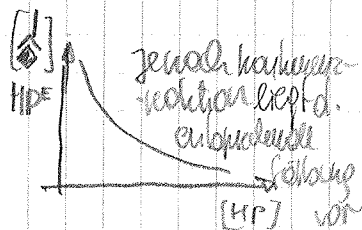 HPE
je nach konzen-
tration liegt d.
entsprechende
Färbung
vor
[HP]